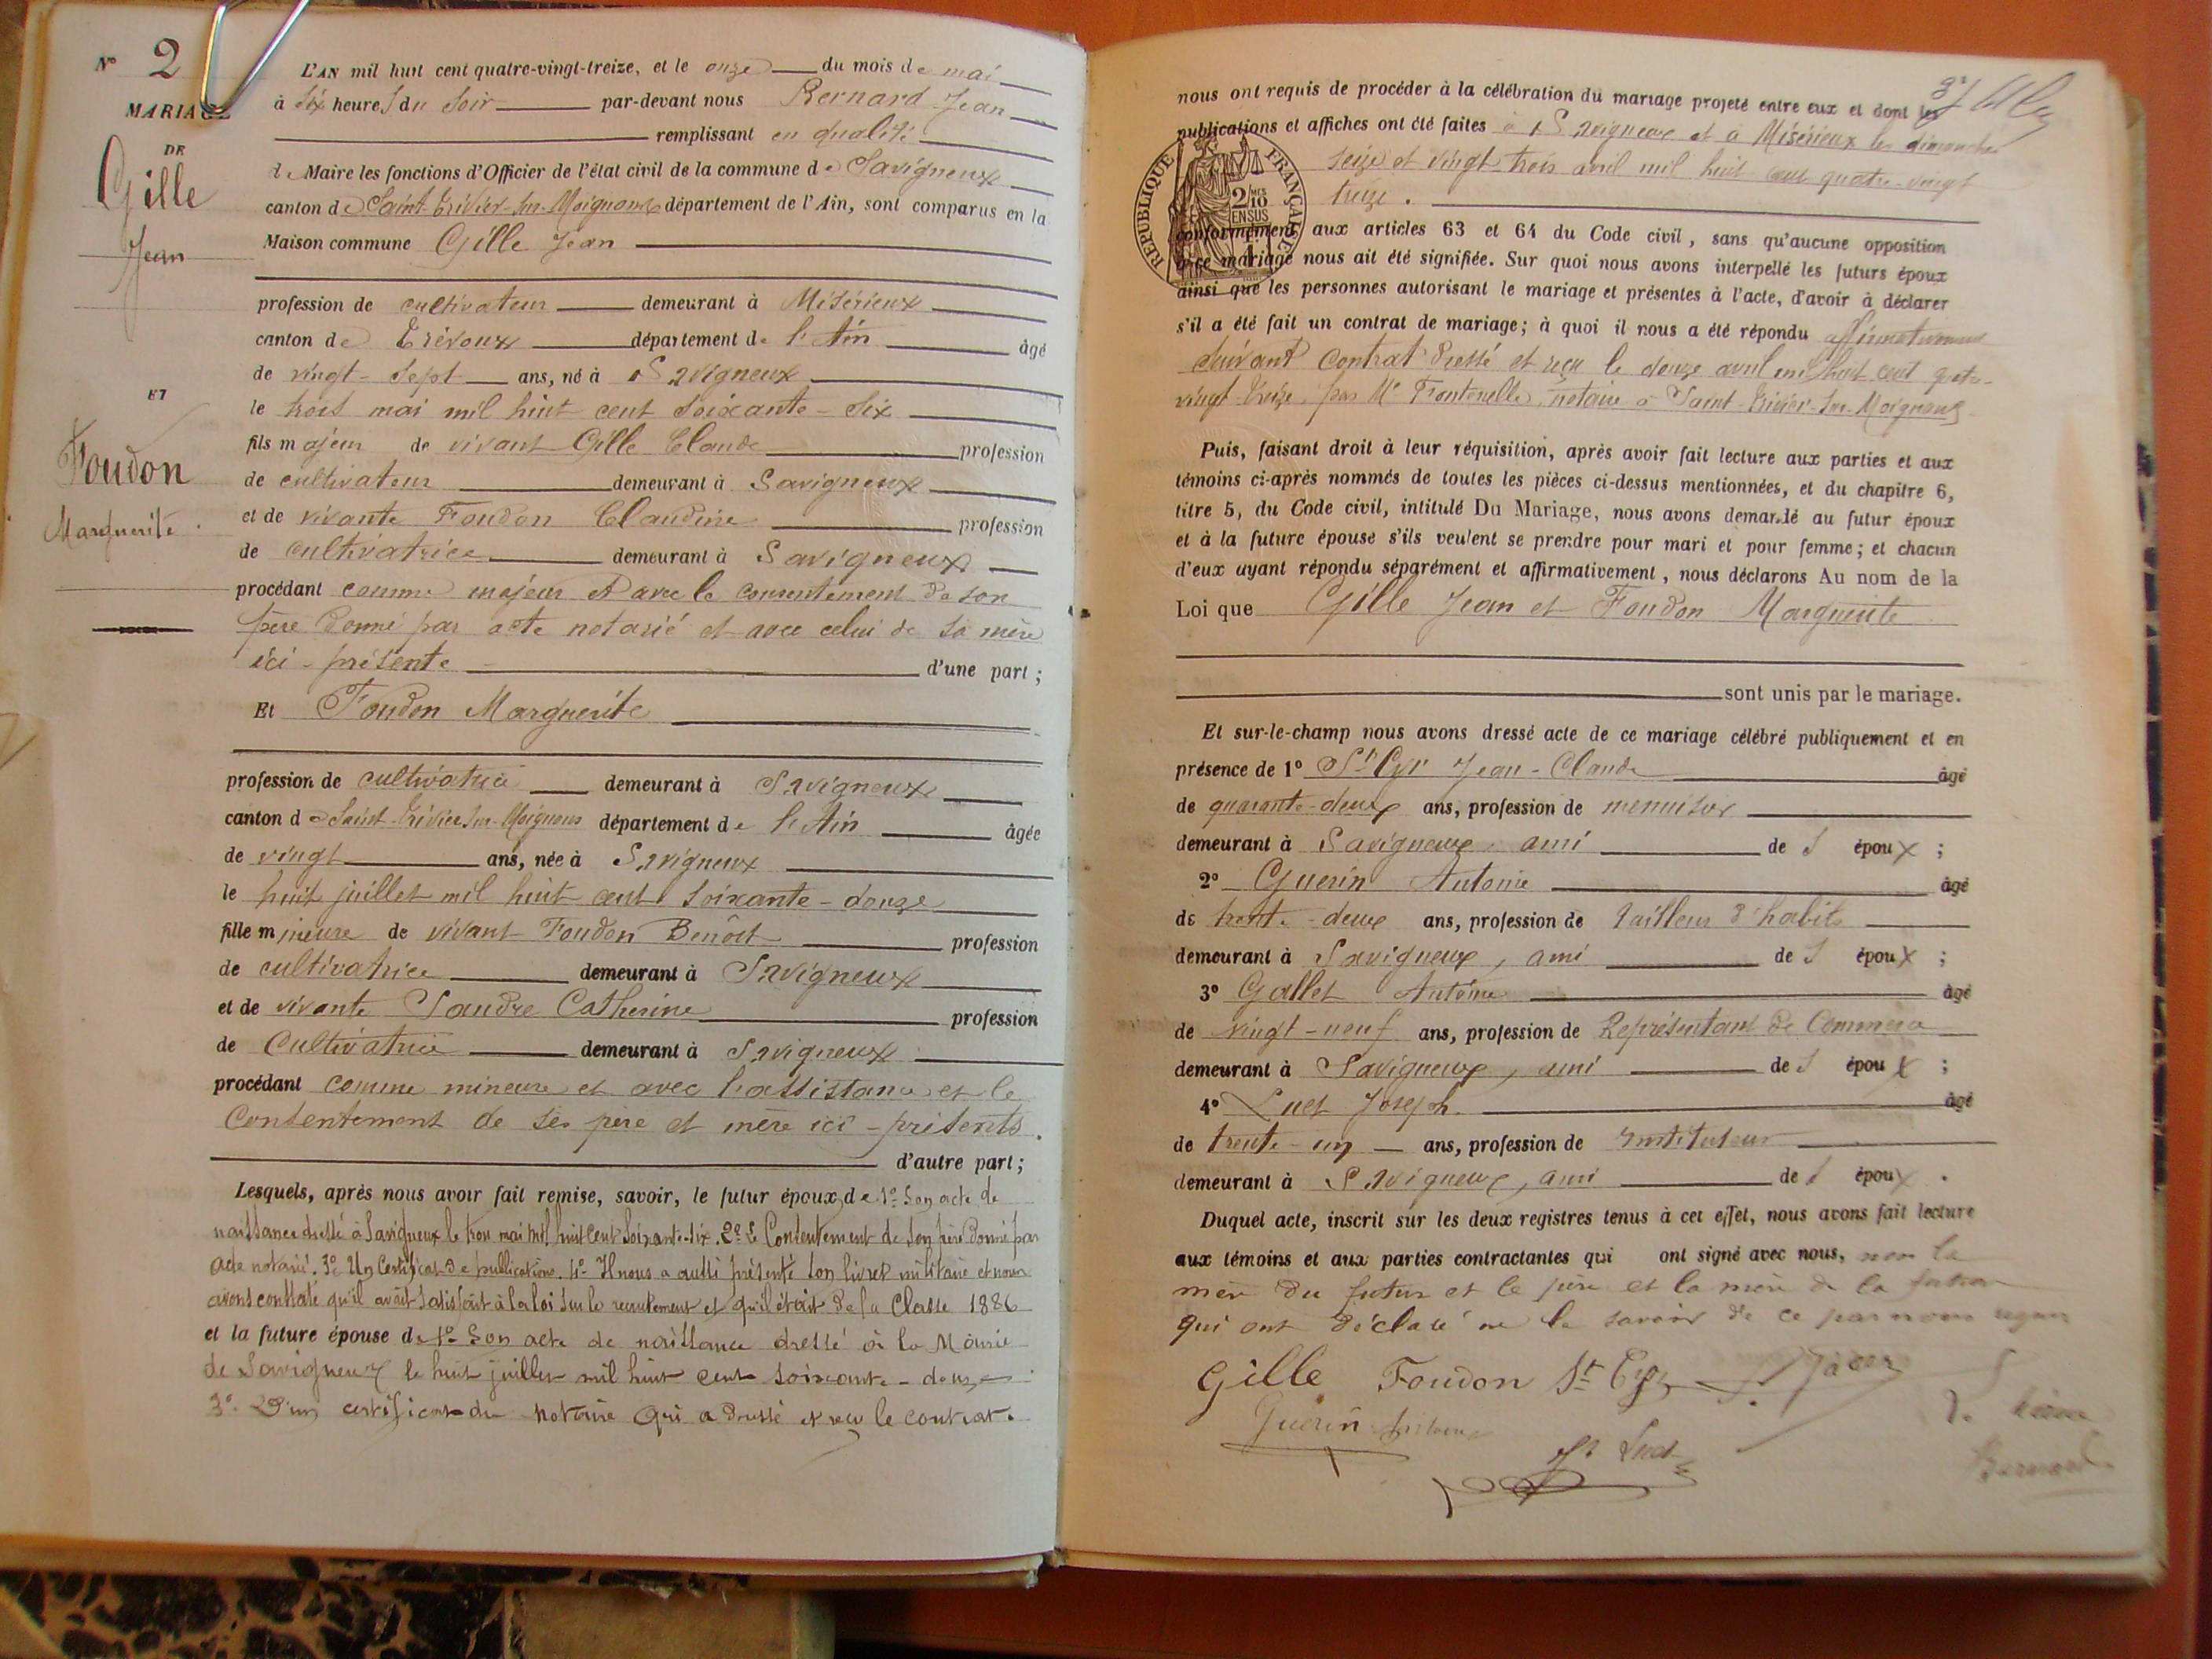 N° 2
MARIAGE
DE
Gille
Jean
ET
Foudon
Marguerite
L'AN mil huit cent quatre-vingt-treize, et le onze du mois de mai
à six heures du soir par-devant nous Bernard Jean
remplissant en qualité
de Maire les fonctions d'Officier de l'état civil de la commune de Savigneux
canton de Saint-Trivier-sur-Moignans département de l'Ain, sont comparus en la
Maison commune Gille Jean
profession de cultivateur demeurant à Misérieux
canton de Trévoux département de l'Ain âgé
de vingt-sept ans, né à Savigneux
le trois mai mil huit cent soixante-six
fils majeur de vivant Gille Claude profession
de cultivateur demeurant à Savigneux
et de vivante Foudon Claudine profession
de cultivatrice demeurant à Savigneux
procédant comme majeur et avec le consentement de son
père donné par acte notarié et avec celui de sa mère
ici-présente d'une part ;
Et Foudon Marguerite
profession de cultivatrice demeurant à Savigneux
canton de Saint-Trivier-sur-Moignans département de l'Ain âgée
de vingt ans, née à Savigneux
le huit juillet mil huit cent soixante-douze
fille mineure de vivant Foudon Benoît profession
de cultivatrice demeurant à Savigneux
et de vivante Jandre Catherine profession
de Cultivatrice demeurant à Savigneux
procédant comme mineure et avec l'assistance et le
consentement de ses père et mère ici-présents.
d'autre part ;
Lesquels, après nous avoir fait remise, savoir, le futur époux, de 1° Son acte de
naissance dressé à Savigneux le trois mai mil huit cent soixante-six. 2° Le Consentement de son père donné par
acte notarié. 3° Un Certificat de publication. 4° Il nous a aussi présenté son livret militaire et nous
avons constaté qu'il avait satisfait à la loi sur le recrutement et qu'il était de la Classe 1886
et la future épouse de 1° Son acte de naissance dressé à la Mairie
de Savigneux le huit juillet mil huit cent soixante-douze
3° D'un certificat du notaire qui a dressé et reçu le contrat.
nous ont requis de procéder à la célébration du mariage projeté entre eux et dont les
publications et affiches ont été faites à Savigneux et à Misérieux les dimanches
seize et vingt-trois avril mil huit cent quatre-vingt
treize.
RÉPUBLIQUE FRANÇAISE
2/10
EN SUS
conformément aux articles 63 et 64 du Code civil, sans qu'aucune opposition
à ce mariage nous ait été signifiée. Sur quoi nous avons interpellé les futurs époux
ainsi que les personnes autorisant le mariage et présentes à l'acte, d'avoir à déclarer
s'il a été fait un contrat de mariage ; à quoi il nous a été répondu affirmativement
suivant contrat dressé et reçu le douze avril mil huit cent quatre-
vingt-treize, par Me Frontenelle, notaire à Saint-Trivier-sur-Moignans
Puis, faisant droit à leur réquisition, après avoir fait lecture aux parties et aux
témoins ci-après nommés de toutes les pièces ci-dessus mentionnées, et du chapitre 6,
titre 5, du Code civil, intitulé Du Mariage, nous avons demandé au futur époux
et à la future épouse s'ils veulent se prendre pour mari et pour femme ; et chacun
d'eux ayant répondu séparément et affirmativement, nous déclarons Au nom de la
Loi que Gille Jean et Foudon Marguerite
sont unis par le mariage.
Et sur-le-champ nous avons dressé acte de ce mariage célébré publiquement et en
présence de 1° St Cyr Jean-Claude âgé
de quarante-deux ans, profession de menuisier
demeurant à Savigneux, ami des époux ;
2° Guerin Antoine âgé
de trente-deux ans, profession de tailleur d'habits
demeurant à Savigneux, ami des époux ;
3° Gallet Antoine âgé
de vingt-neuf ans, profession de Représentant de Commerce
demeurant à Savigneux, ami des époux ;
4° Luet Joseph âgé
de trente-un ans, profession de Instituteur
demeurant à Savigneux, ami des époux.
Duquel acte, inscrit sur les deux registres tenus à cet effet, nous avons fait lecture
aux témoins et aux parties contractantes qui ont signé avec nous, non la
mère du futur et le père et la mère de la future
qui ont déclaré ne le savoir de ce par nous requis
Gille Foudon St Cyr
Guerin
Le Maire
Jh Luet
Bernard